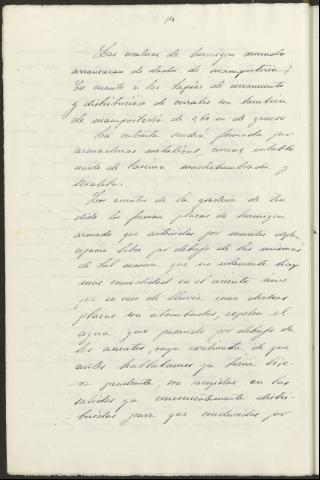 14
Las escaleras de hormigon armado
arrancaran de dados de mamposteria;
En cuanto a las tapias de cerramiento
y distribucion de corrales son tambien
de mamposteria de 0,60 m de grueso
La cubierta vendra formada por
armaduras metalicas, correas entabla
nado de tarima machihembrada y
Uralita.
Los asientos de la graderia de ten
dido los forman placas de hormigon
armado que sostenidos por murales
espacio libre por debajo de las mismas
de tal manera que no solamente hay
mas comodidad en el asiento sino
que en caso de lluvia, como dichas
placas son abombadas, expelen el
agua que pasando por debajo de
los asientos, cuyo
antes hablabamos ya tiene lige-
ra pendiente, son recogidas en las
salidas ya convenientemente distri-
buidas para que conducidas por